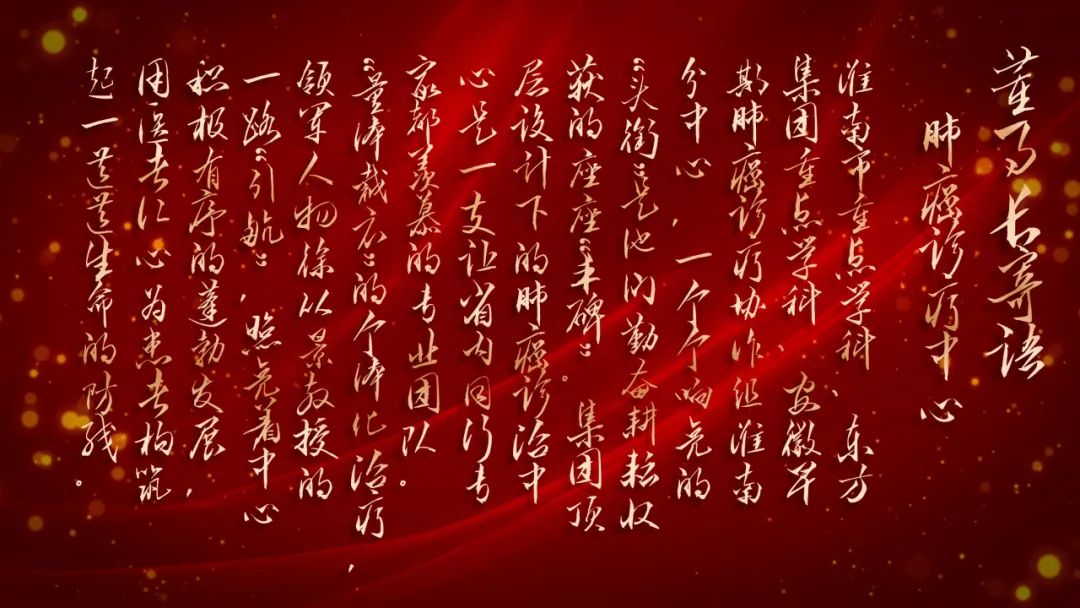 董事长寄语
肺癌诊疗中心
淮南市重点学科、东方
集团重点学科、安徽早
期肺癌诊疗协作组淮南
分中心，一个个响亮的
“头衔”是他们勤奋耕耘收
获的座座“丰碑”。集团顶
层设计下的肺癌诊治中
心是一支让省内同行专
家都羡慕的专业团队。
“量体裁衣”的个体化治疗，
领军人物徐从景教授的
一路“引航”，照亮着中心
积极有序的蓬勃发展，
用医者仁心为患者构筑
起一道道生命的防线。